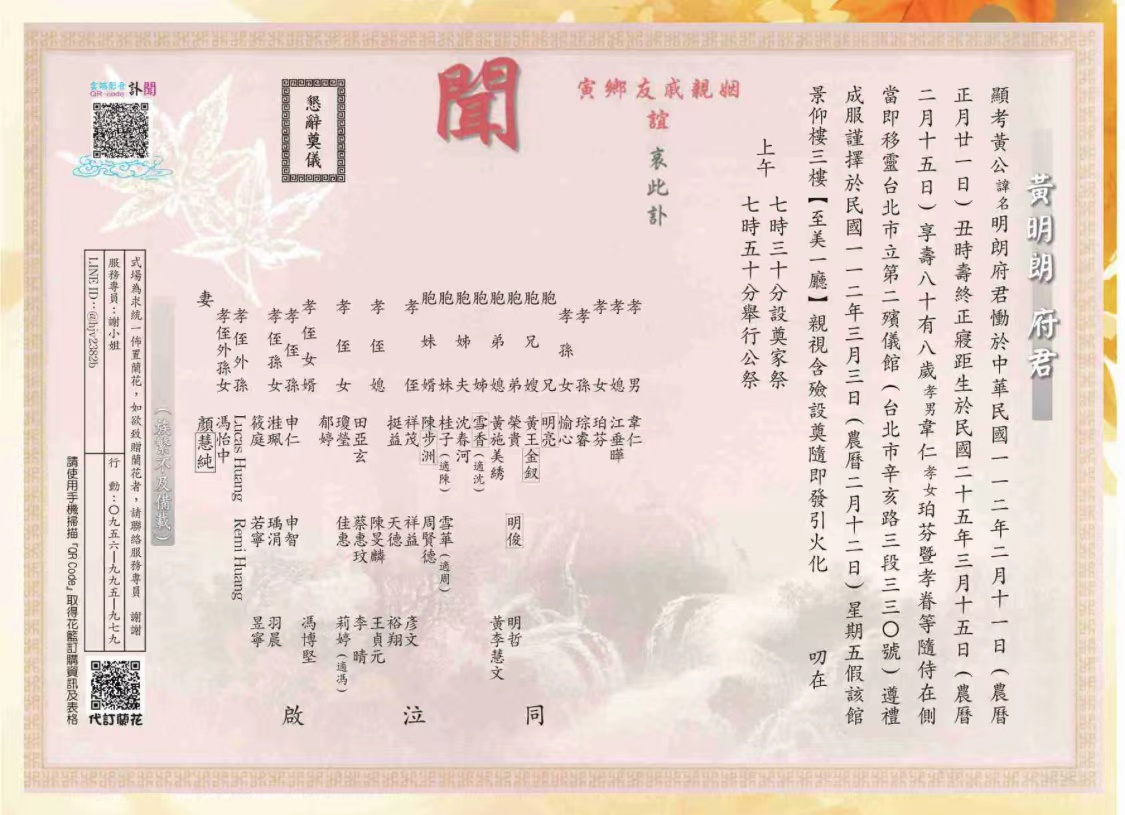 黃明朗 府君
顯考黃公諱名明朗府君慟於中華民國一一二年二月十一日(農曆
正月廿一日)丑時壽終正寢距生於民國二十五年三月十五日(農曆
二月十五日)享壽八十有八歲孝男韋仁孝女珀芬暨孝眷等隨侍在側
當即移靈台北市立第二殯儀館(台北市辛亥路三段三三〇號)遵禮
成服謹擇於民國一一二年三月三日(農曆二月十二日)星期五假該館
景仰樓三樓【至美一廳】親視含殮設奠隨即發引火化 叨在
上午
七時三十分設奠家祭
七時五十分舉行公祭
寅鄉友戚親姻
誼
哀此訃
聞
懇辭奠儀
雲端影音 訃聞
QR-code
孝男 韋仁
孝媳 江垂曄
孝女 珀芬
孝孫 琮睿
孝孫女 愉心
胞兄 明亮
胞兄嫂 黃王金釵
胞弟 榮貴 明俊 明哲
胞弟媳 黃施美綉 黃李慧文
胞姊 雪香(適沈)
胞姊夫 沈春河
胞妹 桂子(適陳) 雪華(適周)
胞妹婿 陳步洲 周賢德
孝侄 祥茂 祥益 彥文
挺益 天德 裕翔
孝侄媳 田亞玄 陳旻麟 王貞元
蔡惠玟 李晴
孝侄女 瓊瑩 佳惠 莉婷(適馮)
郁婷
孝侄女婿 馮博堅
孝侄孫 申仁 申智 羽晨
孝侄孫女 溎珮 瑀涓 昱寧
筱庭 若寧
孝侄外孫 Lucas Huang Remi Huang
孝侄外孫女 馮怡中
妻 顏慧純
同 泣 啟
(族繁不及備載)
式場為求統一佈置蘭花,如欲致贈蘭花者,請聯絡服務專員 謝謝
服務專員:謝小姐 行 動:〇九五六—九九五—九七九
LINE ID:@hjv2382b
請使用手機掃描「QR Code」取得花籃訂購資訊及表格
代訂蘭花